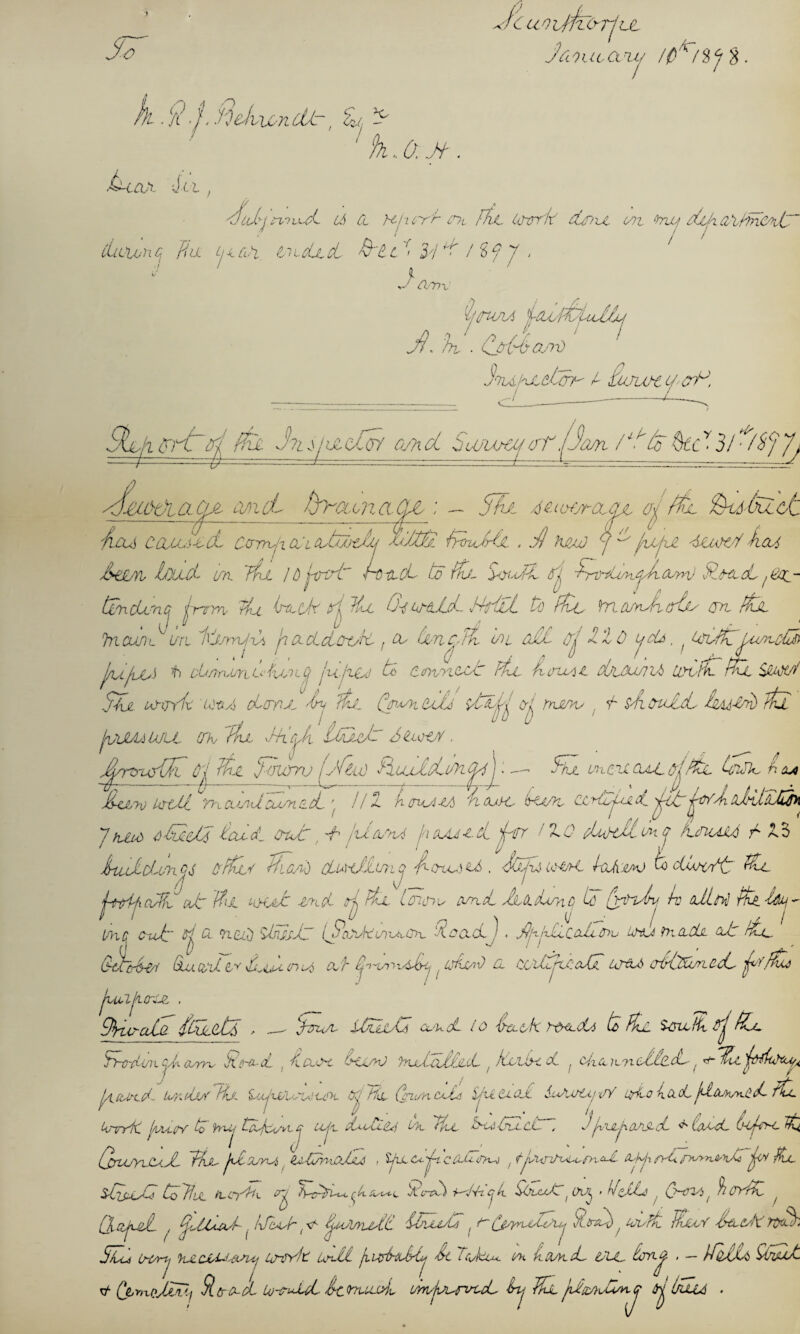 Scunthorpe
To
January 10th 1898.
M. R. J. Behrendt, Esqre
M.O.H.
Dear Sir,
Subjoined is a report on the work done in my department
during the year ended Dec. 31st 1897.
I am
Yours faithfully
A. M. Cobban
Inspector & Surveyor.
Report of the Inspector and Surveyor (Jan 1st to Dec. 31st 1897)
Sewerage and Drainage : — The sewerage of the District
has caused comparatively little trouble. A new 9" pipe sewer has
been laid in the 10 foot road to the South of Frodingham Road, ex-
tending from the back of the Oswald Hotel to the manhole on the
main in paddock, a length in all of 220 yds., with junction
pipes & diminishing pipes to connect the house drains with the sewer
The work was done by the Council's staff of men, & should lessen the
pressure on the High Street sewer.
Growth of the Town (New Buildings). — The increase of the town has
been well maintained; 112 houses have been certified fit for habitation
7 new streets laid out, & plans passed for 120 dwelling houses & 23
buildings other than dwelling houses. Steps were taken to divert the
footpath at the west end of the town and leading to Crosby to allow the lay-
ing out of a new street (Parkinson Road). Application was made at the
October Quarter Sessions at Grimsby, when a certificate was obtained for this
purpose.
Private Streets. — Four streets and 10 back roads to the South of the
Frodingham Road, have been metalled, kerbed, channelled, & the footways
paved under the supervision of the Councils special surveyor who had planned the
work prior to my taking up duties in the District. I prepared & laid before the
Council the plans, estimates, specifications, & provisional apportionments for the
streets to the north of Frodingham Road & High Street, viz. Wells, Cross, North,
Chapel, Gilliatt, West, & Gurnell Streets, & Cemetery Road, with their back roads.
This very necessary work will probably be taken in hand ere long. — Wells Street
& Cemetery Road would be much improved by the planting of trees.